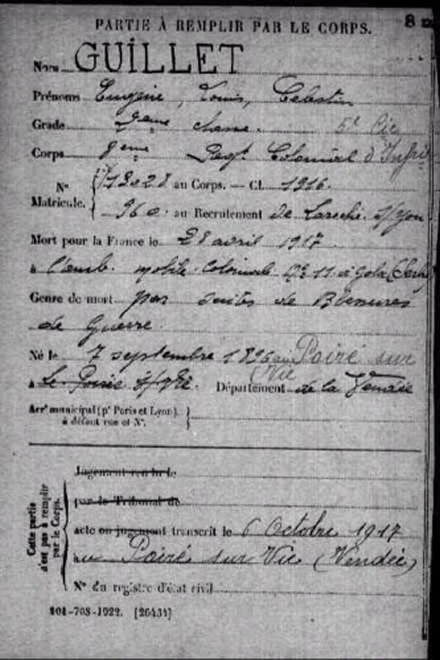 PARTIE À REMPLIR PAR LE CORPS.
8
Nom GUILLET
Prénoms Eugène, Louis, Célestin
Grade 2ème classe. 5e Cie
Corps 8ème Regt Colonial d'Infrie
N° 13028 au Corps. — Cl. 1916.
Matricule. 960. au Recrutement de Laroche s/yon
Mort pour la France le 28 avril 1917
à l'amb. mobile Colonial N° 11 à (Serbie)
Genre de mort par suites de Blessures
de Guerre
Né le 7 septembre 1896 au Poiré sur
Vie
à Le Poiré s/Vie. Département de la Vendée
Arrt municipal (pr Paris et Lyon),
à défaut rue et N°.
Cette partie n'est pas à remplir par le Corps.
Jugement rendu le
par le Tribunal de
acte ou jugement transcrit le 6 Octobre 1917
au Poiré sur Vie (Vendée)
N° du registre d'état civil
101-708-1922. [26434]